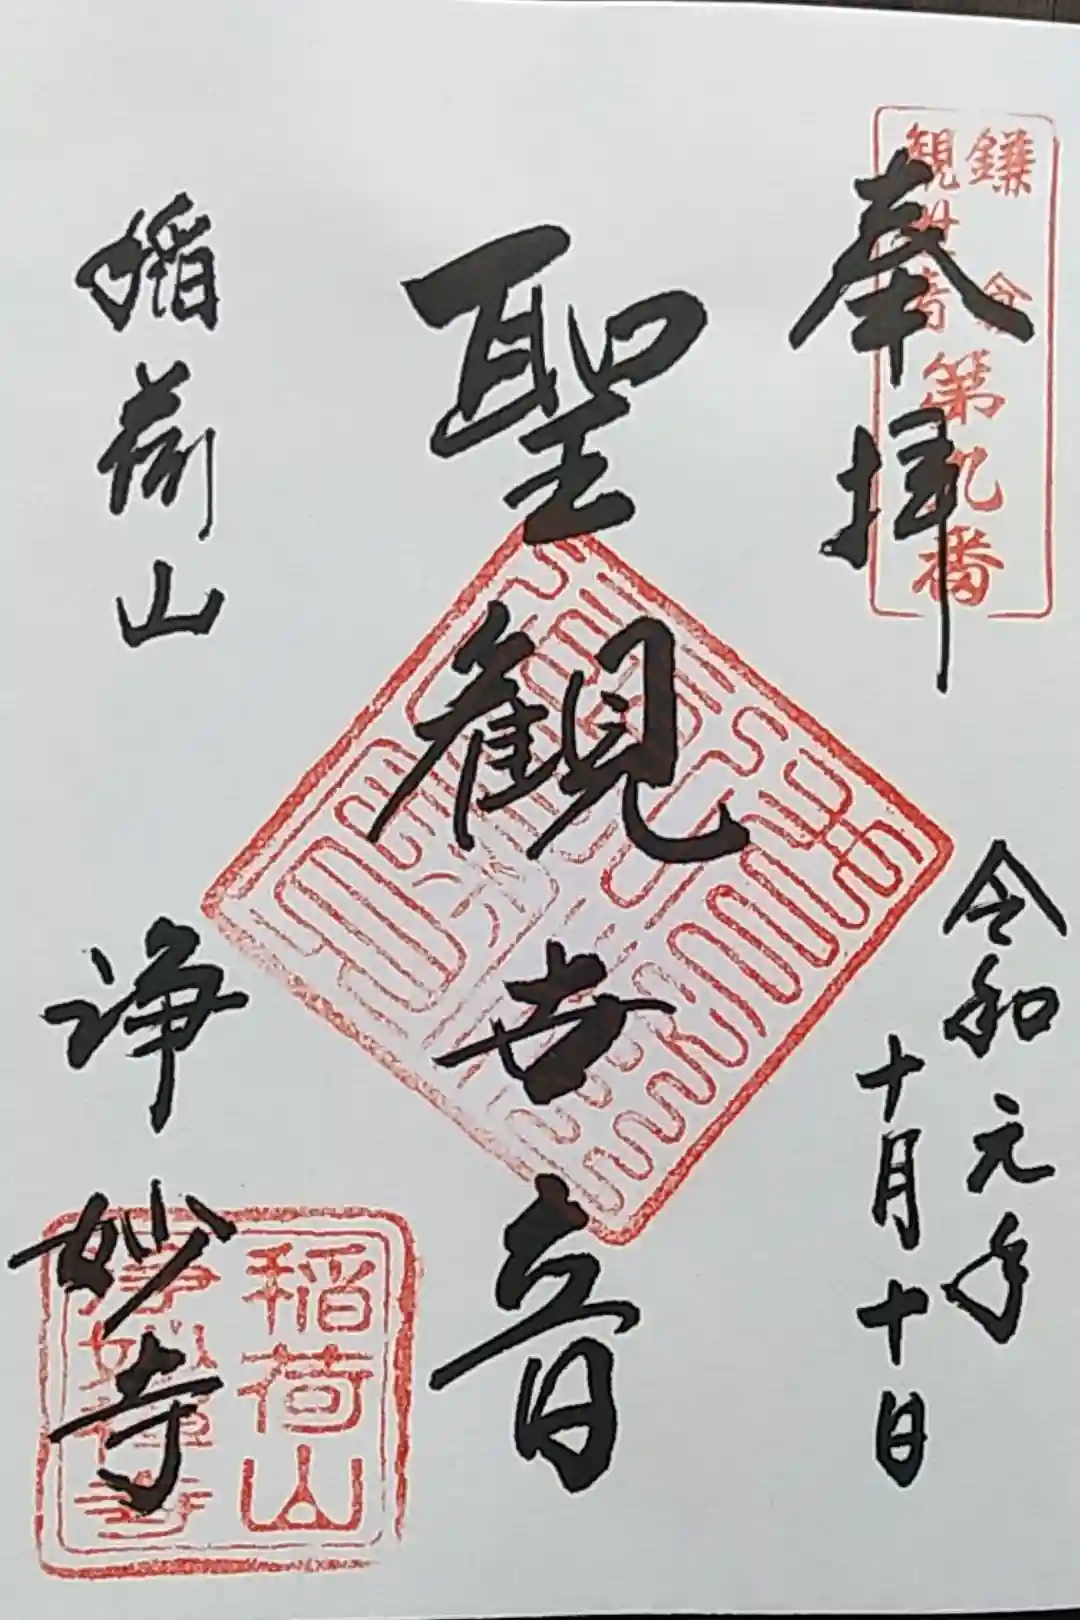 鎌倉
観世音
第九番
奉拝
令和元年
十月十日
聖観世音
稲荷山
浄妙寺
稲荷山
浄妙禅寺